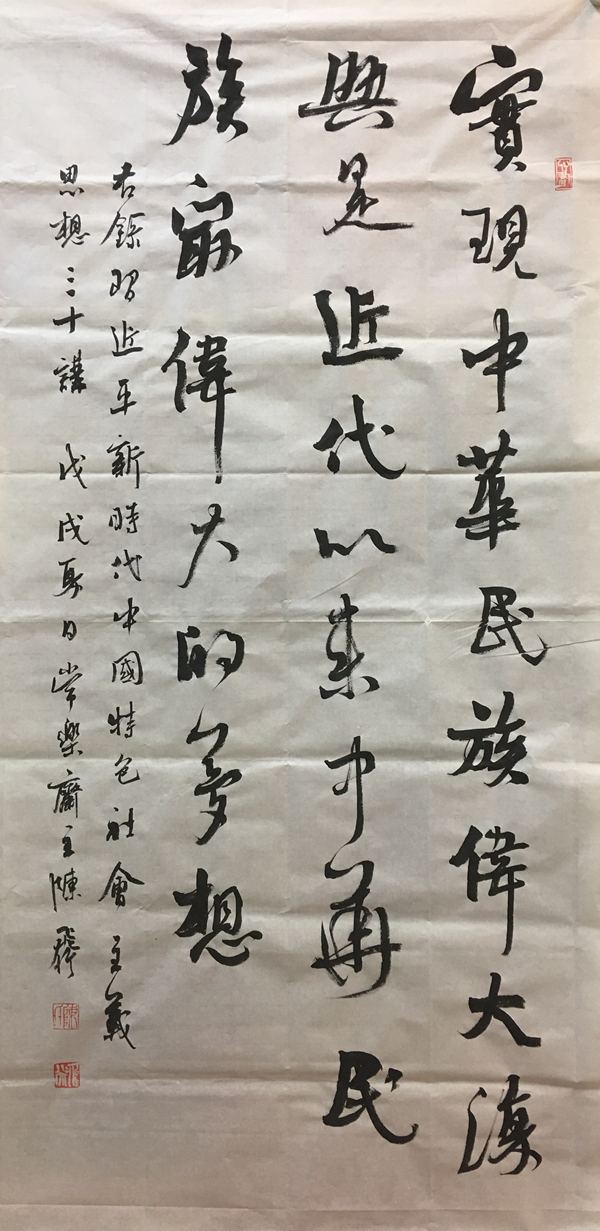 實現中華民族偉大復
興是近代以来中華民
族最偉大的夢想
右錄習近平新時代中國特色社會主義
思想三十講 戊戌夏日常樂齋主陳